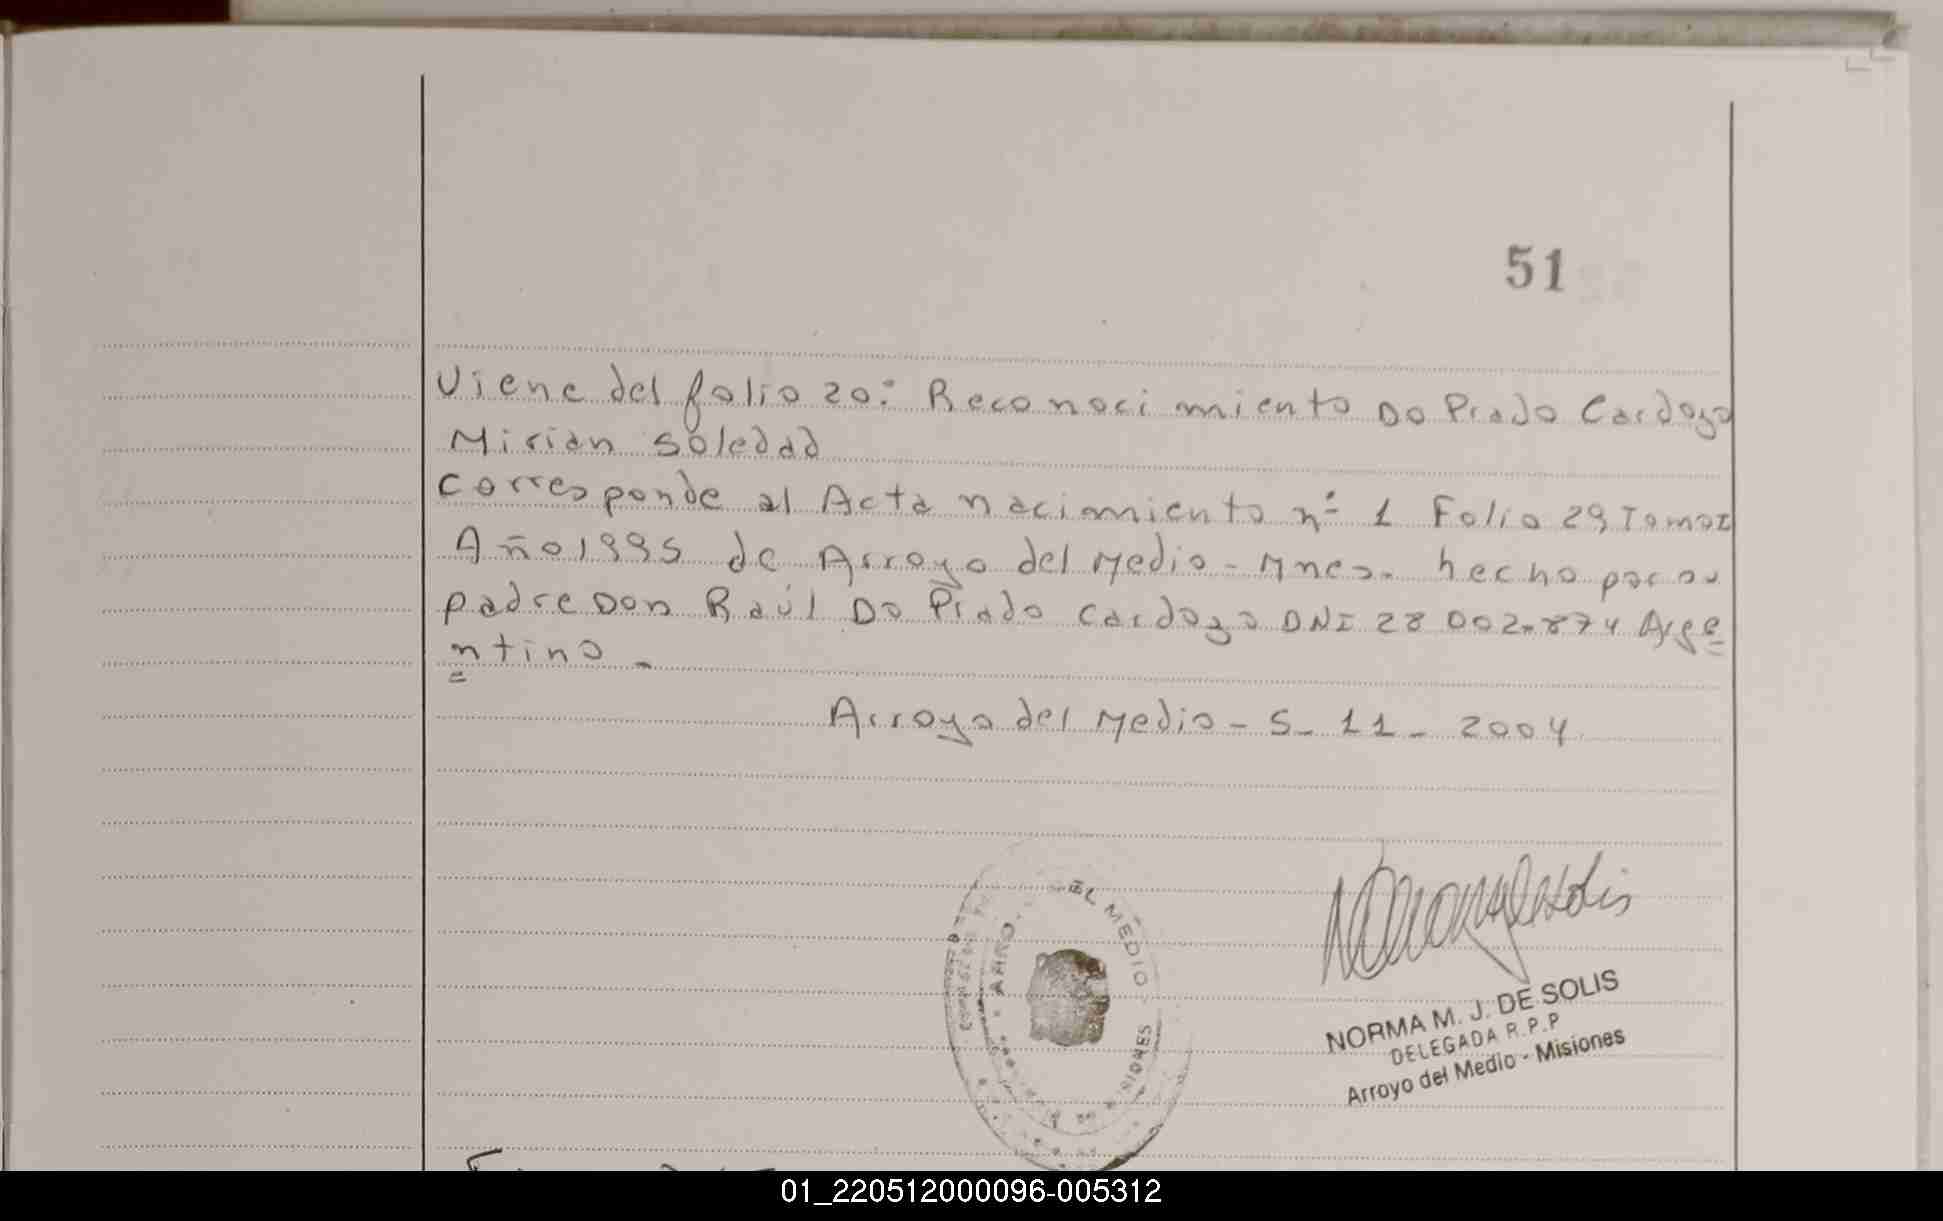 51
Viene del folio 20: Reconocimiento Do Prado Cardozo
Mirian Soledad
Corresponde al Acta nacimiento nº 1 Folio 29 Tomo I
Año 1995 de Arroyo del Medio - Mnes. hecho por su
padre Don Raúl Do Prado Cardozo DNI 28 002.874 Arge
ntino -
Arroyo del Medio - 5 - 11 - 2004
EL MEDIO - MISIONES
NORMA M. J. DE SOLIS
DELEGADA R.P.P
Arroyo del Medio - Misiones
01_220512000096-005312